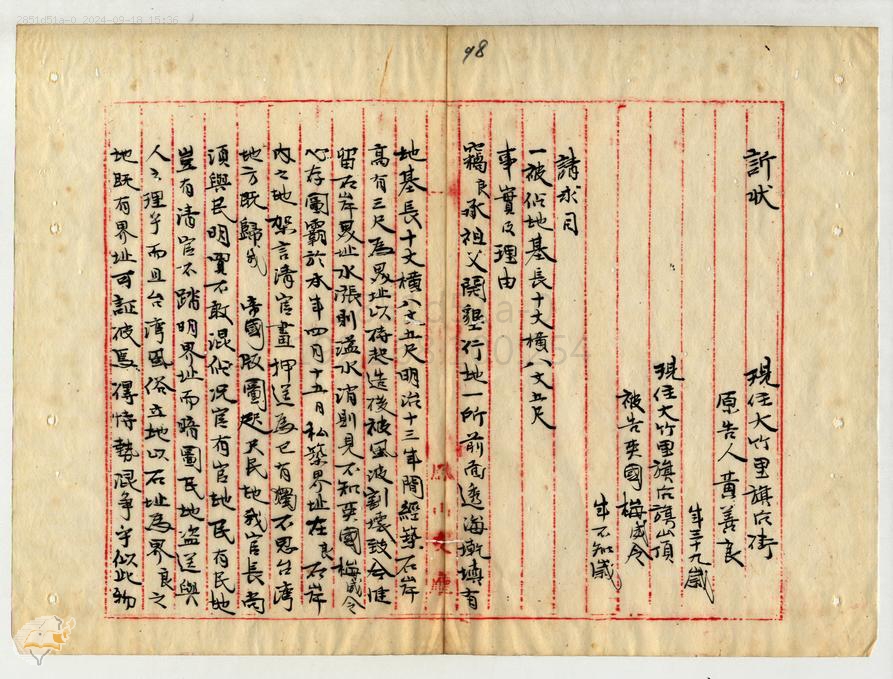 2851d51a-0 2024-09-18 15:36
98
訴狀
現住大竹里旗后街
原告人黃善良
年三十九歲
現住大竹里旗后旗山頂
被告英國梅威令
年不知歲
請求目
一被佔地基長十丈橫八丈五尺
事實及理由
竊良承祖父開墾行地一所前面透海墘填有
地基長十丈橫八丈五尺明治十三年間經築石岸
高有三尺為界址以待起造後被風波割壞致今惟
留石岸界址水漲則溢水消則見不知英國梅威令
心存圖霸於本年四月十五日私築界址在良石岸
內之地架言清官畫押送為己有獨不思台湾
地方既歸我 帝國版圖咫尺民地我官長尚
須與民明買不敢混佔况官有官地民有民地
豈有清官不踏明界址而暗圖民地盗送與
人之理乎而且台湾風俗立地以石址為界良之
地既有界址可証彼焉得恃勢混爭乎似此物